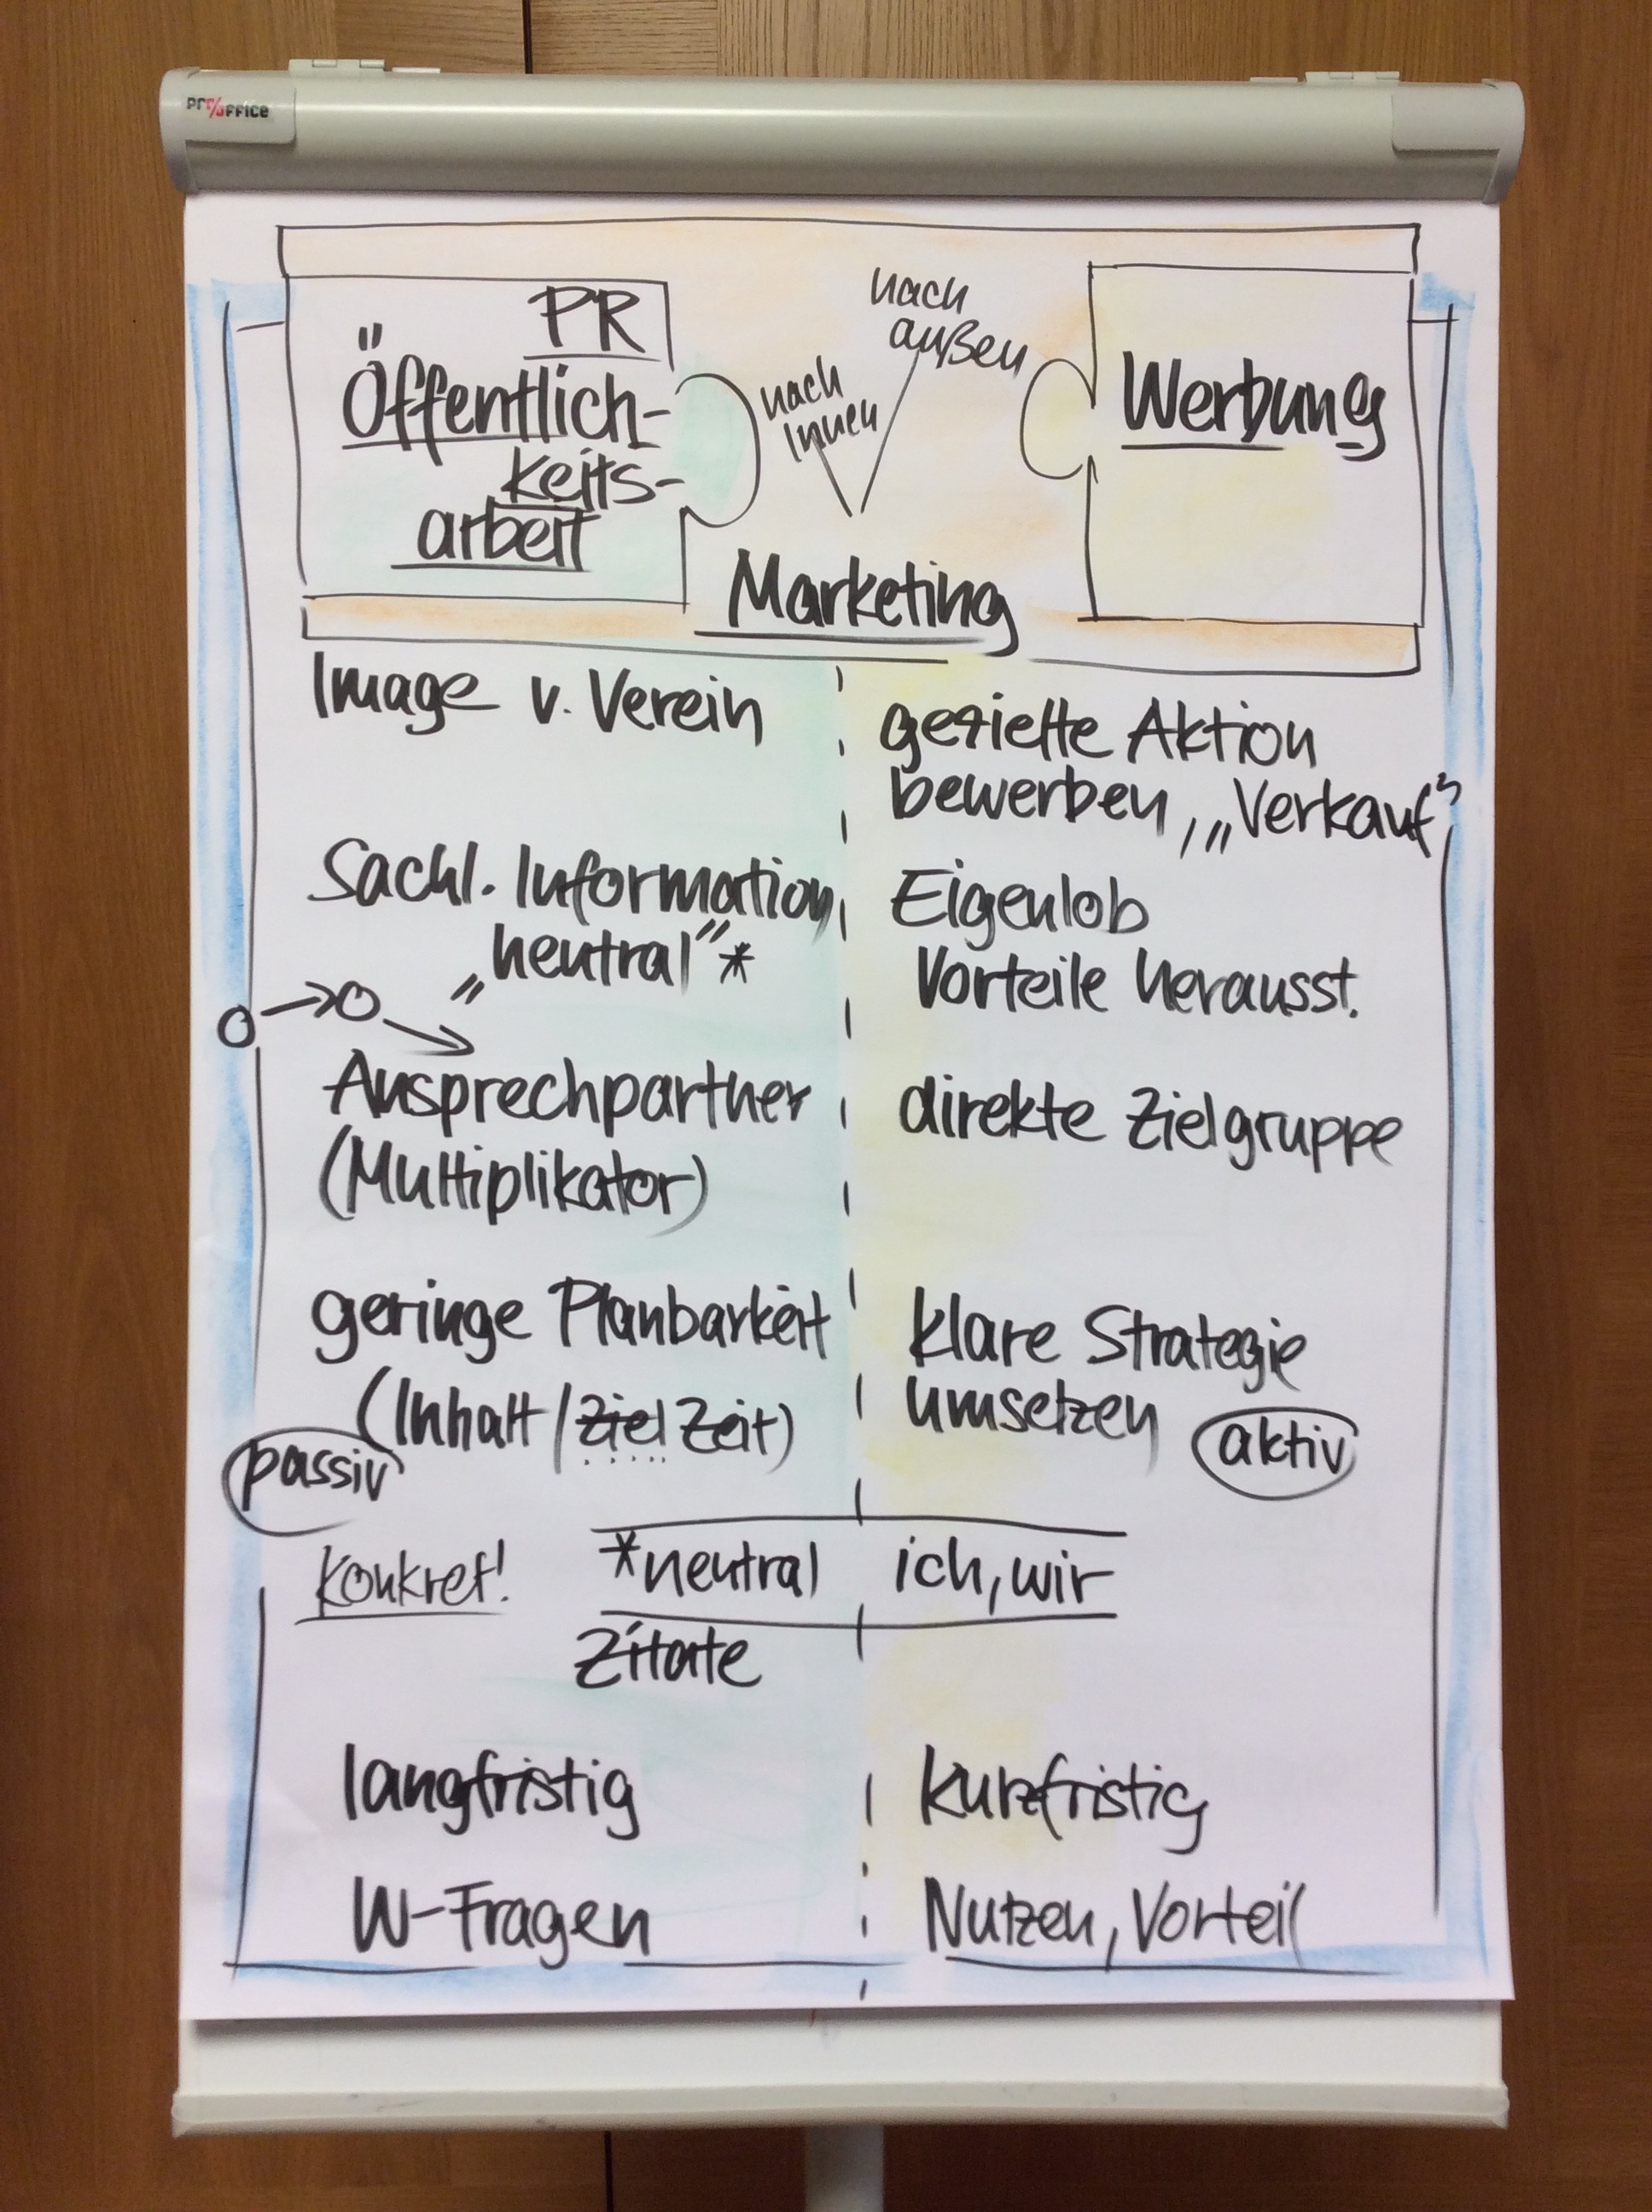 pro/office
PR
Öffentlich-
keits-
arbeit
nach
innen
nach
außen
Werbung
Marketing
Image v. Verein
gezielte Aktion
bewerben, „Verkauf"
Sachl. Information
„neutral"*
Eigenlob
Vorteile herausst.
Ansprechpartner
(Multiplikator)
direkte Zielgruppe
geringe Planbarkeit
(Inhalt/Ziel Zeit)
passiv
klare Strategie
umsetzen
aktiv
konkret!
*neutral
ich, wir
Zitate
langfristig
kurzfristig
W-Fragen
Nutzen, Vorteil